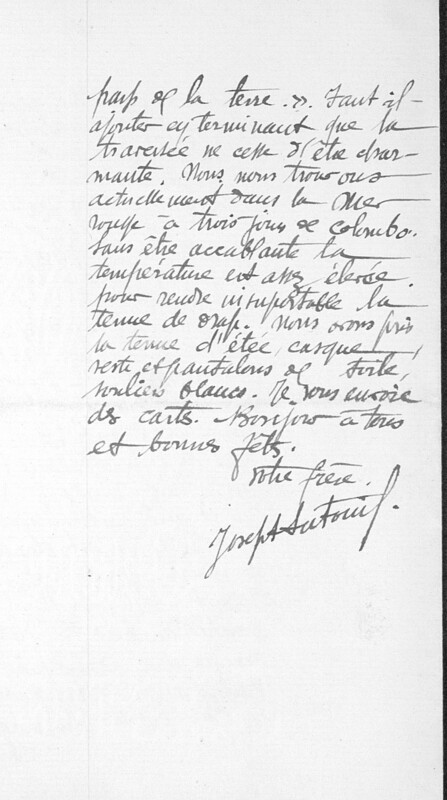 pays de la terre. ». Faut il
ajouter en terminant que la
traversée ne cesse d'être char-
mante. Nous nous trouvons
actuellement dans la Mer
rouge à trois jours de Colombo.
Sans être accablante la
température est assez élevée
pour rendre insuportable la
tenue de drap. Nous avons pris
la tenue d'été, casque,
veste et pantalons de toile,
souliers blancs. Je vous envoie
des cartes. Bonjour à tous
et bonnes fêtes.
Votre frère.
Joseph